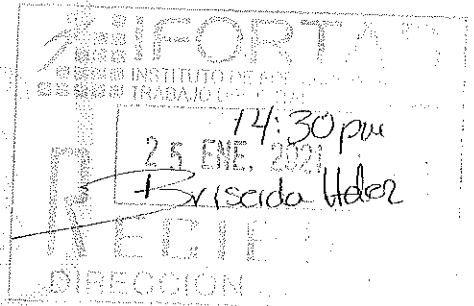 IFORTAS
INSTITUTO DE
TRABAJO
14:30 pm
25 ENE. 2021
Briseida Hdez
RECIBI
DIRECCIÓN